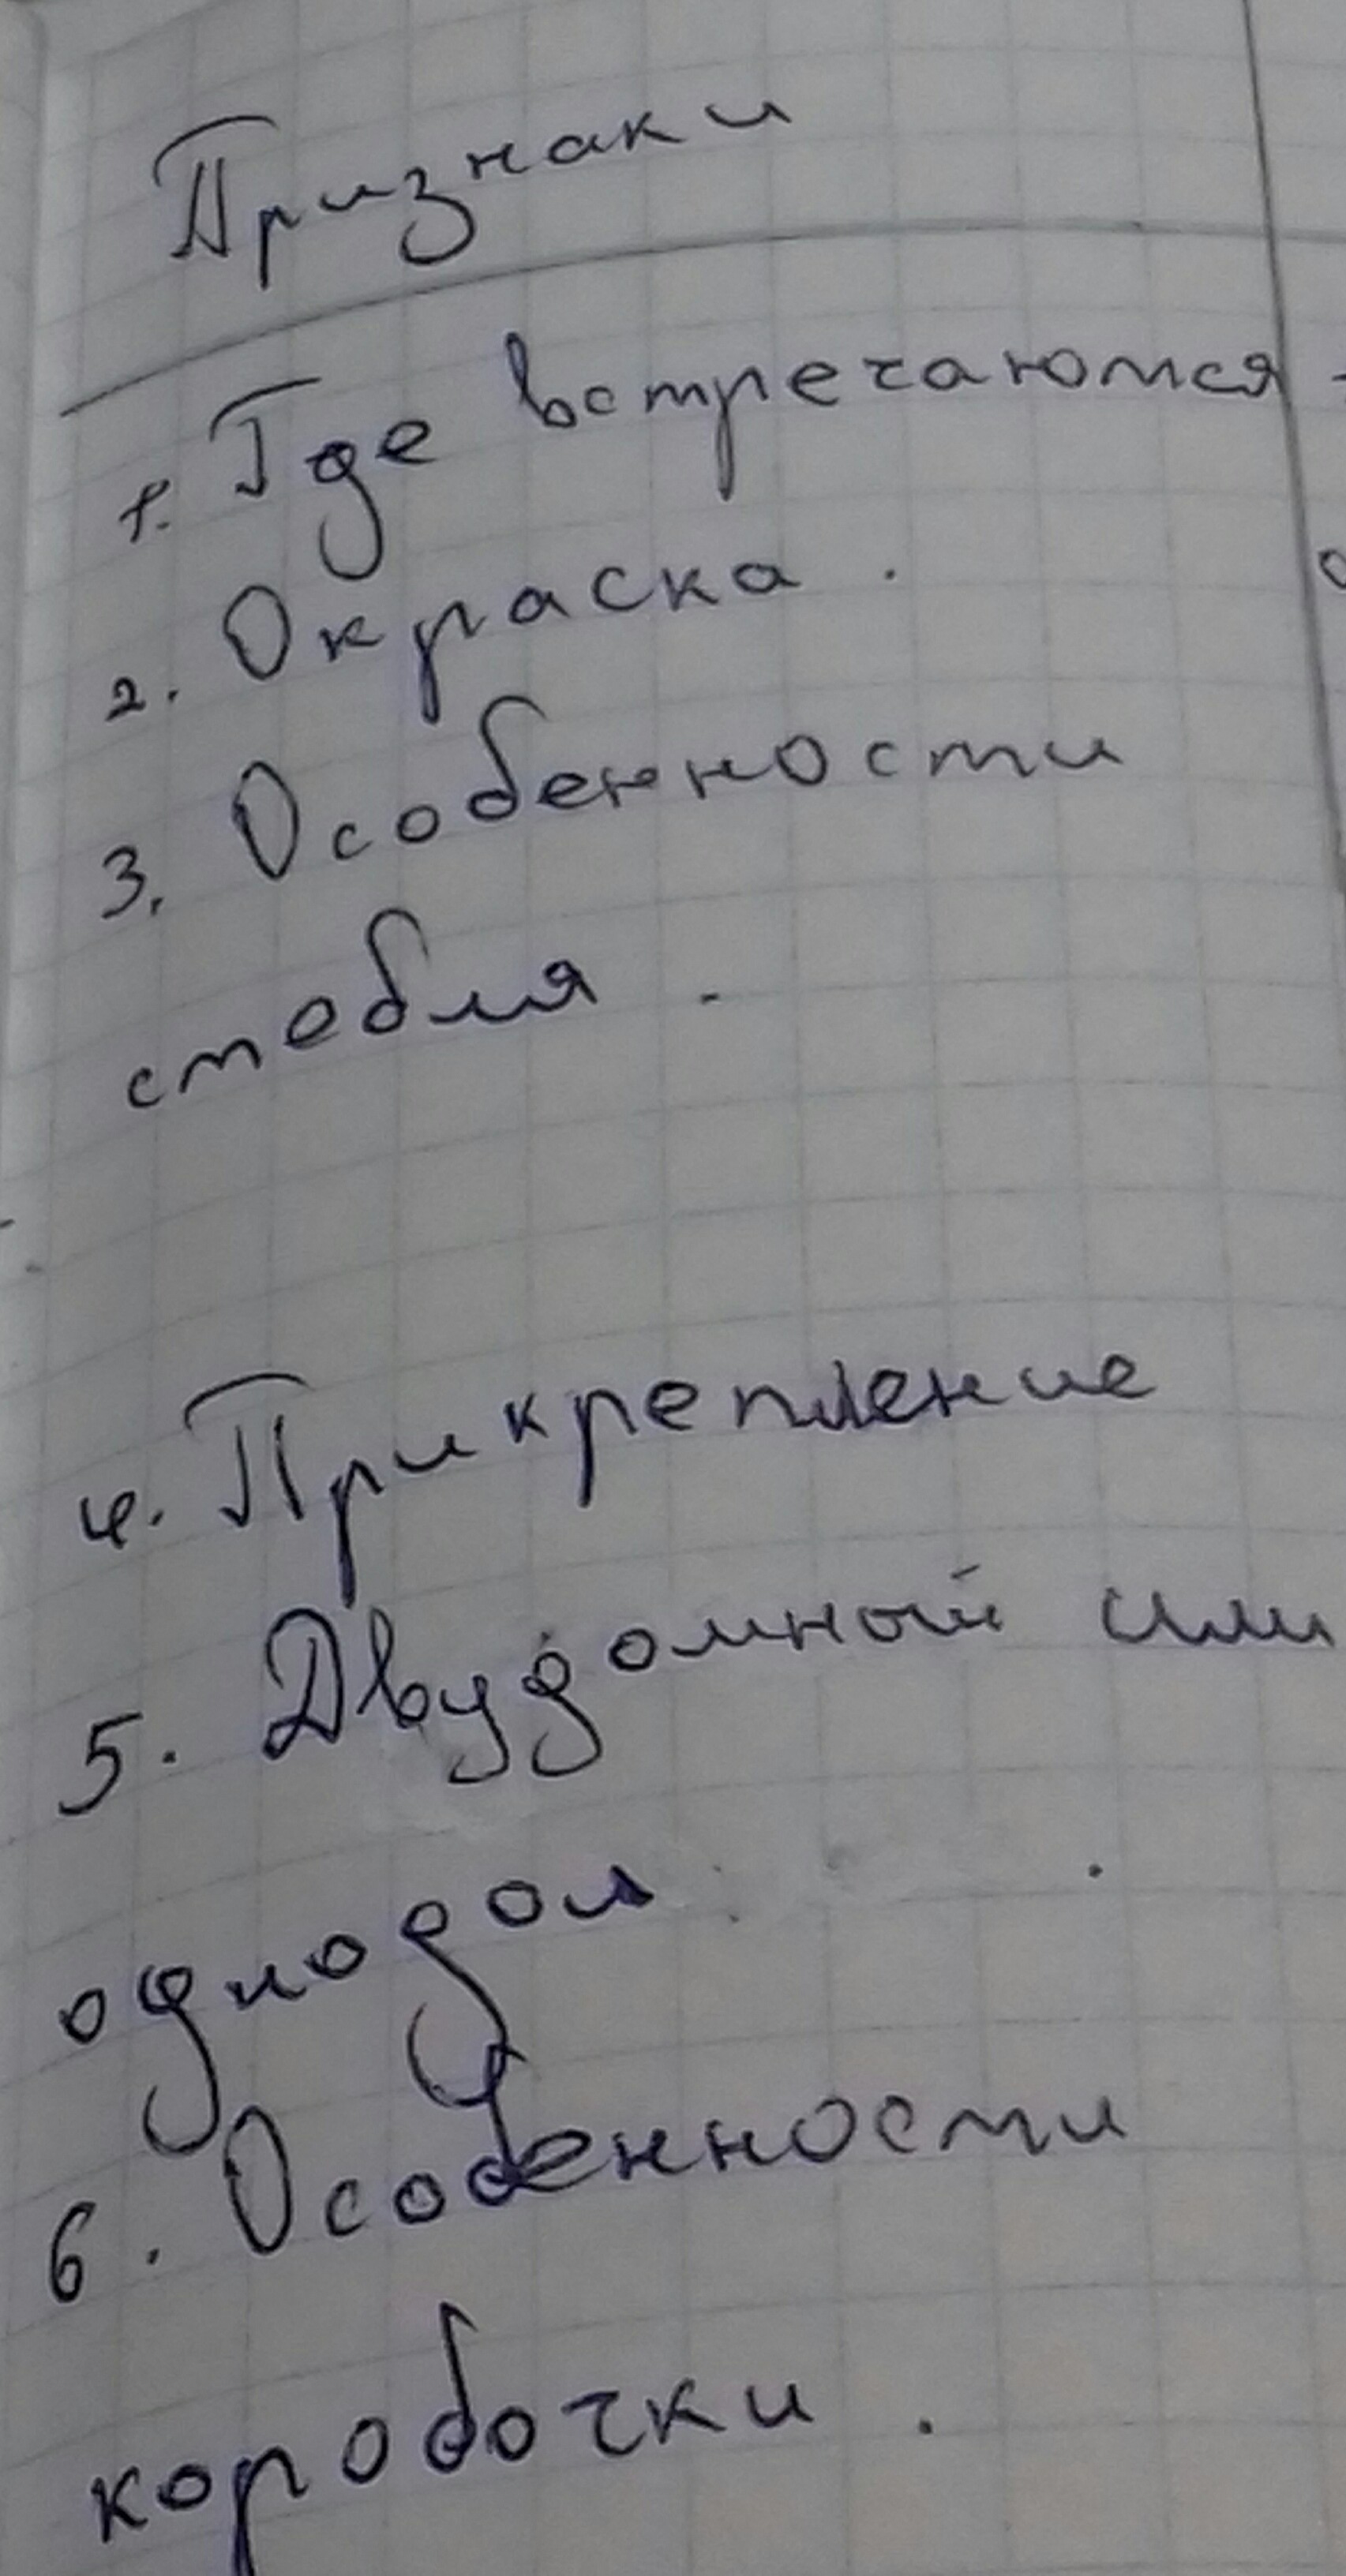 Признаки
1. Где встречаются
2. Окраска.
3. Особенности
стебля.
4. Прикрепление
5. Двудомный или
однодом
6. Особенности
коробочки.